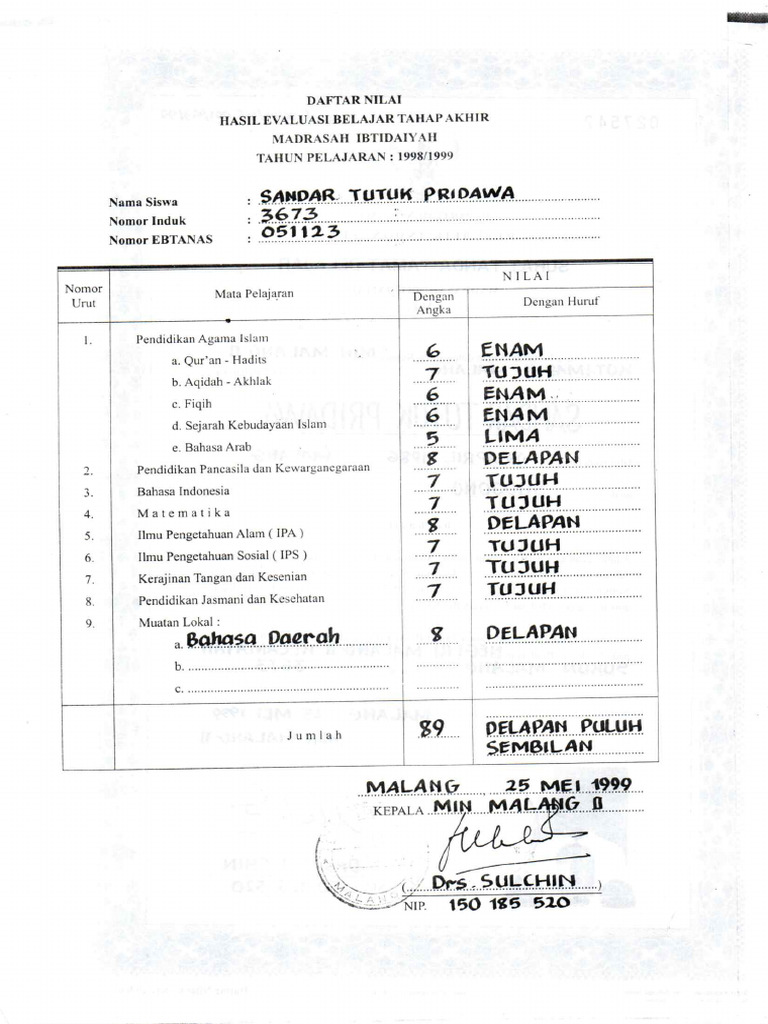 DAFTAR NILAI
HASIL EVALUASI BELAJAR TAHAP AKHIR
MADRASAH IBTIDAIYAH
TAHUN PELAJARAN : 1998/1999
Nama Siswa : SANDAR TUTUK PRIDAWA
Nomor Induk : 3673
Nomor EBTANAS : 051123
Nomor Urut Mata Pelajaran NILAI
Dengan Angka Dengan Huruf
1. Pendidikan Agama Islam
a. Qur'an - Hadits 6 ENAM
b. Aqidah - Akhlak 7 TUJUH
c. Fiqih 6 ENAM
d. Sejarah Kebudayaan Islam 6 ENAM
e. Bahasa Arab 5 LIMA
2. Pendidikan Pancasila dan Kewarganegaraan 8 DELAPAN
3. Bahasa Indonesia 7 TUJUH
4. Matematika 7 TUJUH
5. Ilmu Pengetahuan Alam ( IPA ) 8 DELAPAN
6. Ilmu Pengetahuan Sosial ( IPS ) 7 TUJUH
7. Kerajinan Tangan dan Kesenian 7 TUJUH
8. Pendidikan Jasmani dan Kesehatan 7 TUJUH
9. Muatan Lokal :
a. Bahasa Daerah 8 DELAPAN
b.
c.
Jumlah 89 DELAPAN PULUH
SEMBILAN
MALANG, 25 MEI 1999
KEPALA MIN MALANG II
MALANG
( Drs. SULCHIN )
NIP. 150 185 520